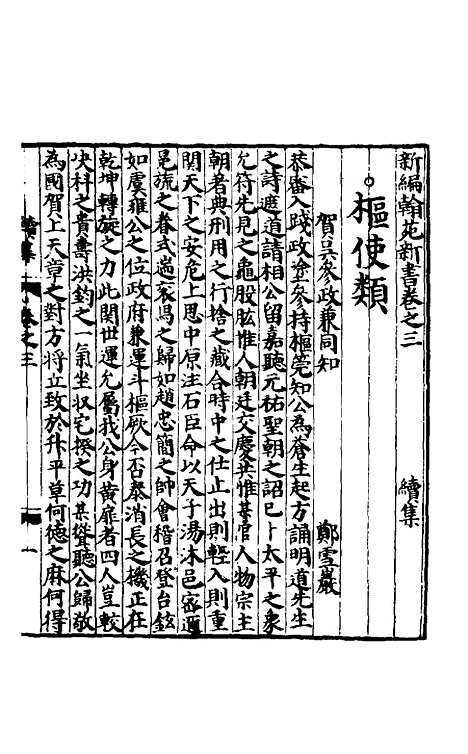 新編翰苑新書卷之三　續集
樞使類
賀吳參政兼同知　鄭雪巖
恭審入踐政塗參持樞筦知公為蒼生起方誦明道先生
之詩遮道請相公留嘉聽元祐聖朝之詔已卜太平之象
允符先見之龜股肱惟人朝廷交慶共惟某官人物宗主
朝著典刑用之行捨之藏合時中之仕止出則輕入則重
関天下之安危上思中原注石臣命以天子湯沐邑密邇
冕旒之眷式遄衮舄之歸如趙忠簡之帥會稽召登台鉉
如虞雍公之位政府兼運斗樞厥今否泰消長之機正在
乾坤轉旋之力此関世運允屬我公身黄扉者四人豈較
史科之貴壽洪鈞之一氣坐収宅揆之功某聳聽公歸敬
為國賀上天章之對方將立致於升平草何德之麻何得
續集　卷之三　一